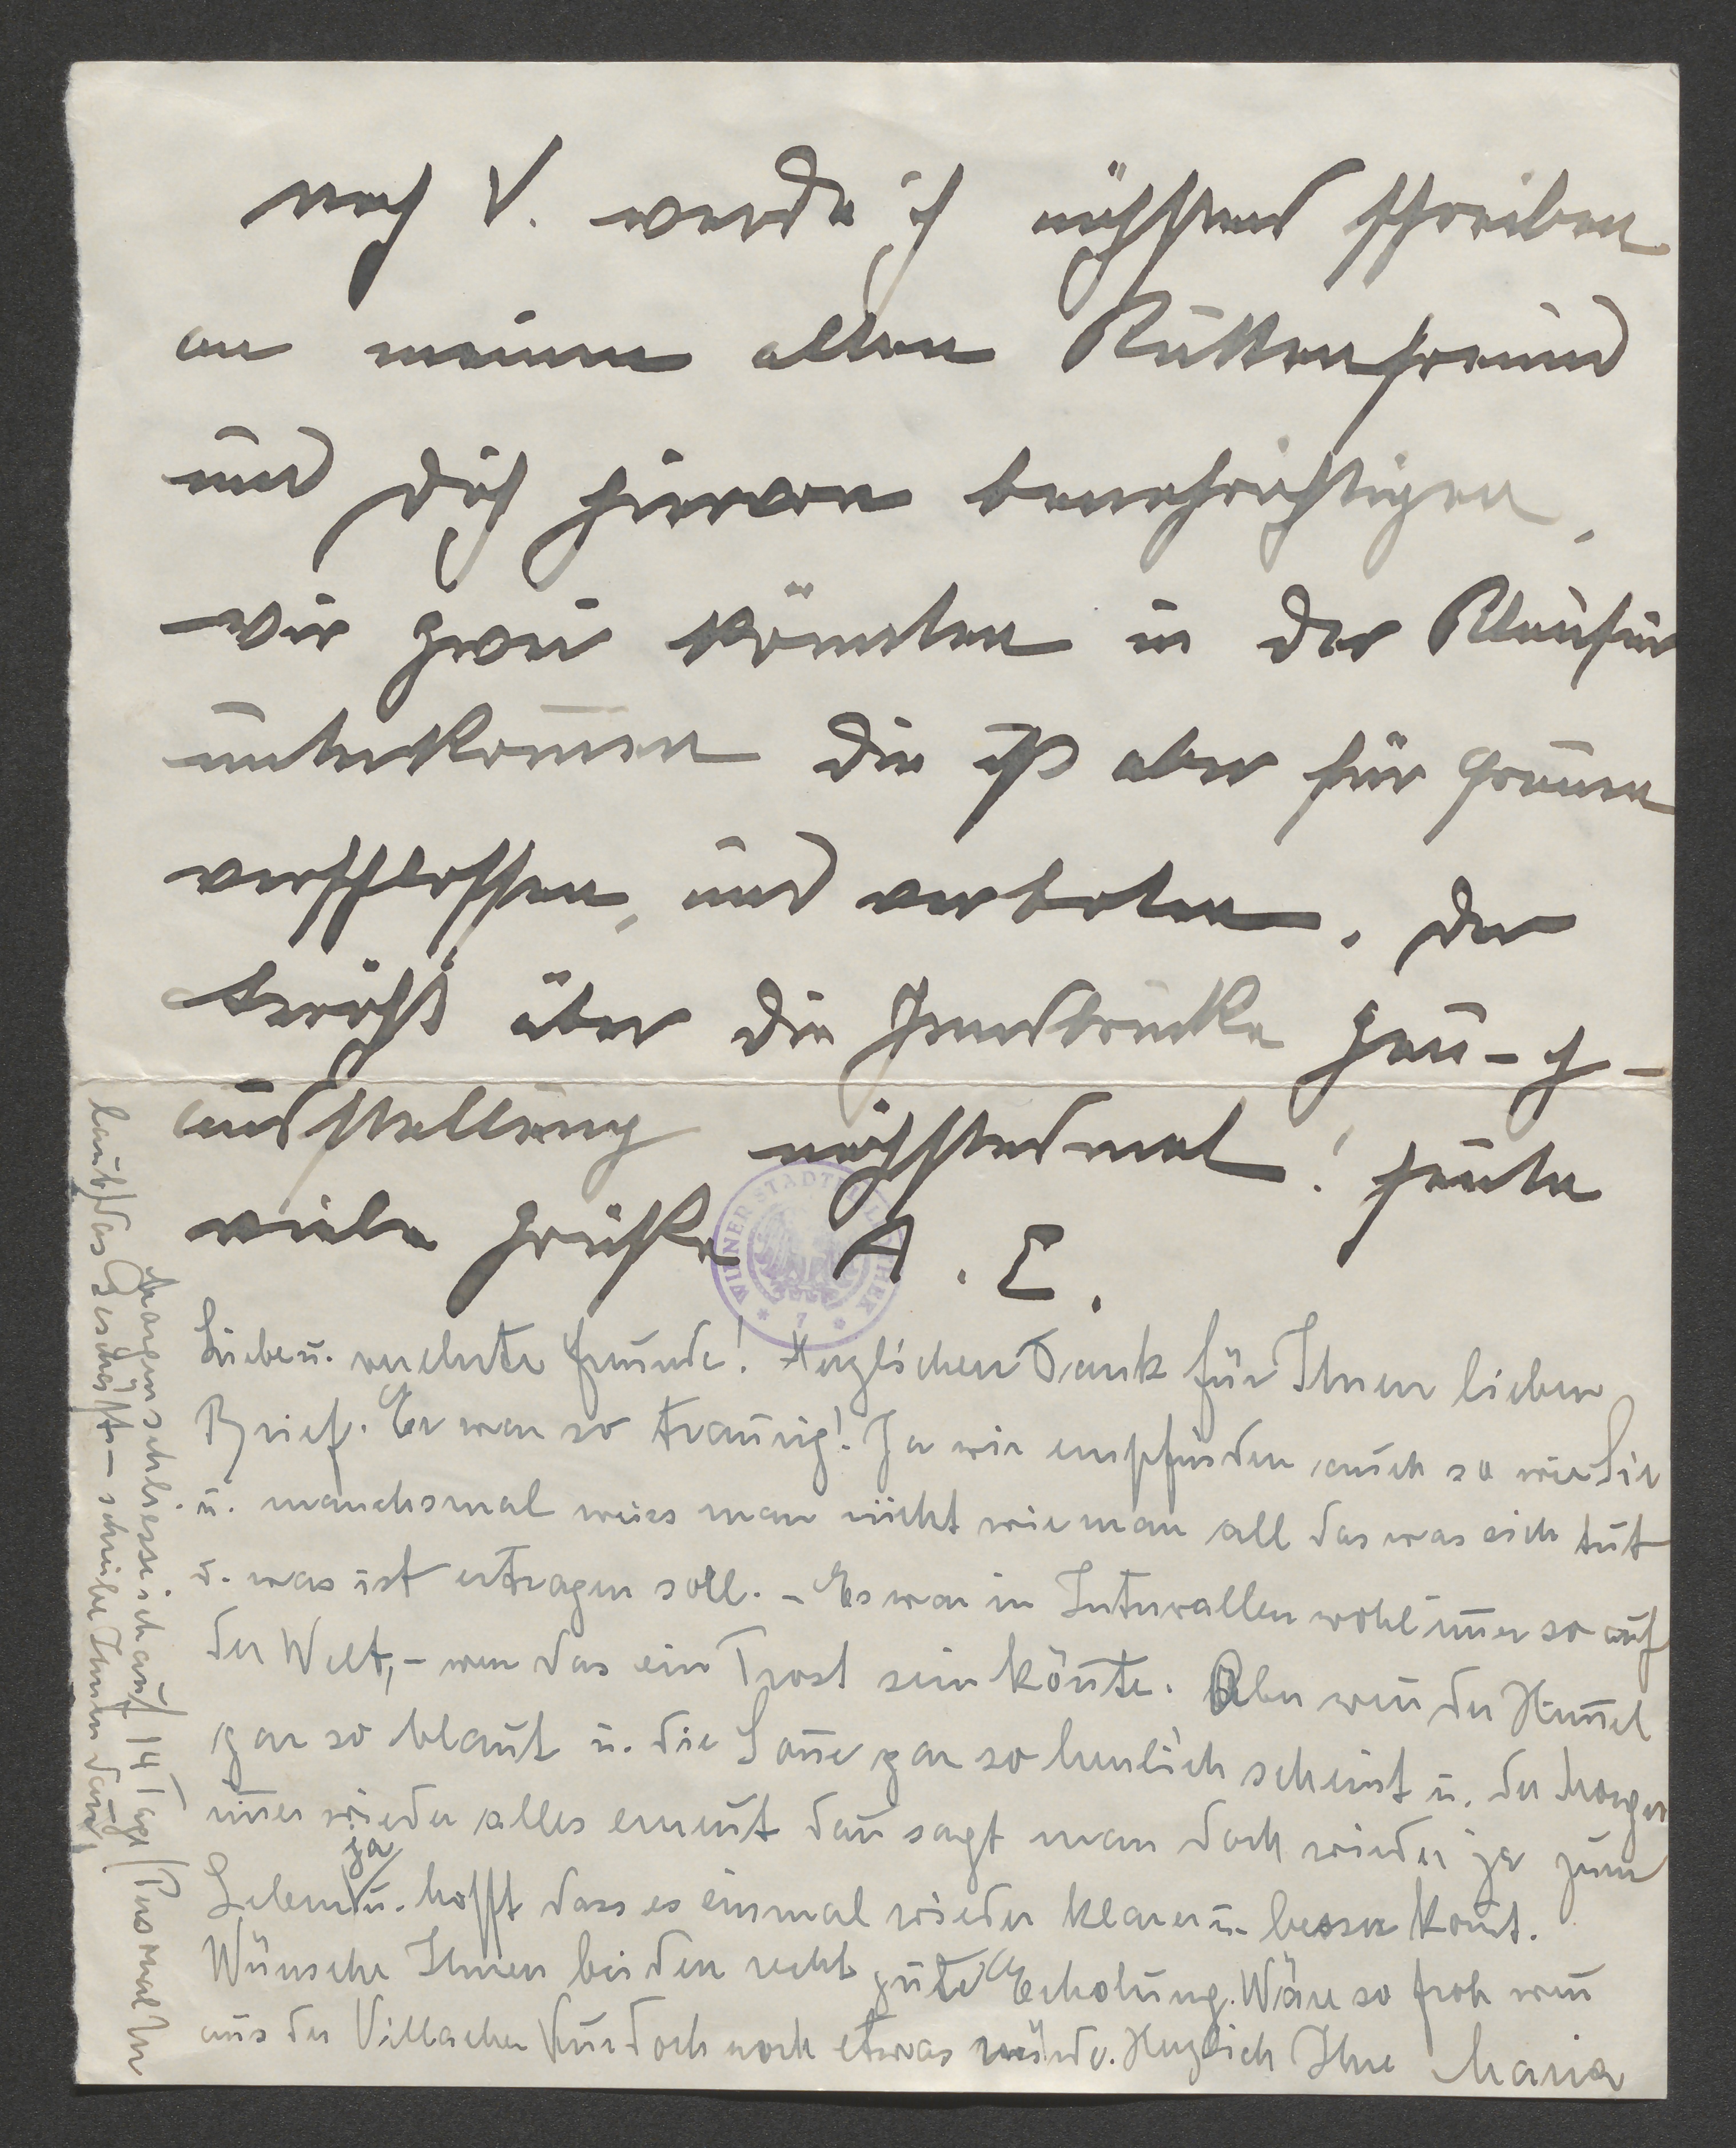 nach V. werde ich nächstens schreiben
an meinen alten Kuttenfreund
und dich hiervon benachrichtigen,
wir zwei könnten in der Klausur
unterkom̄en die ist aber für Frauen
verschlossen, und verboten. der
bericht über die Innsbrucke Gau-
ausstellung nächstesmal! heute
viele Grüße A. E.
WIENER STADTBIBLIOTHEK
* 7 *
Liebe u. verehrte Freunde! Herzlichen Dank für Ihren lieben
Brief. Er war so traurig! Ja wir empfinden auch so wie Sie
u. manchsmal weiss man nicht wie man all das was sich tut
u. was ist ertragen soll. – Es war in Intervallen wohl im̄er so auf
der Welt, – wen das ein Trost sein kön̄te. Aber wen̄ der Him̄el
gar so blaut u. die Son̄e gar so herrlich scheint u. der Morgen
im̄er wieder alles erneut dan̄ sagt man doch wieder ja zum
Leben ja u. hofft dass es einmal wieder klarer u. besser kom̄t.
Wünsche Ihnen beiden recht gute Erholung. Wäre so froh wen̄
aus der Villacher Kur doch noch etwas würde. Herzlich Ihre Maria
Morgen schliesse ich auf 14 Tage / Personal Ur
laub / das Geschäft – schreibe Ihnen dan̄,